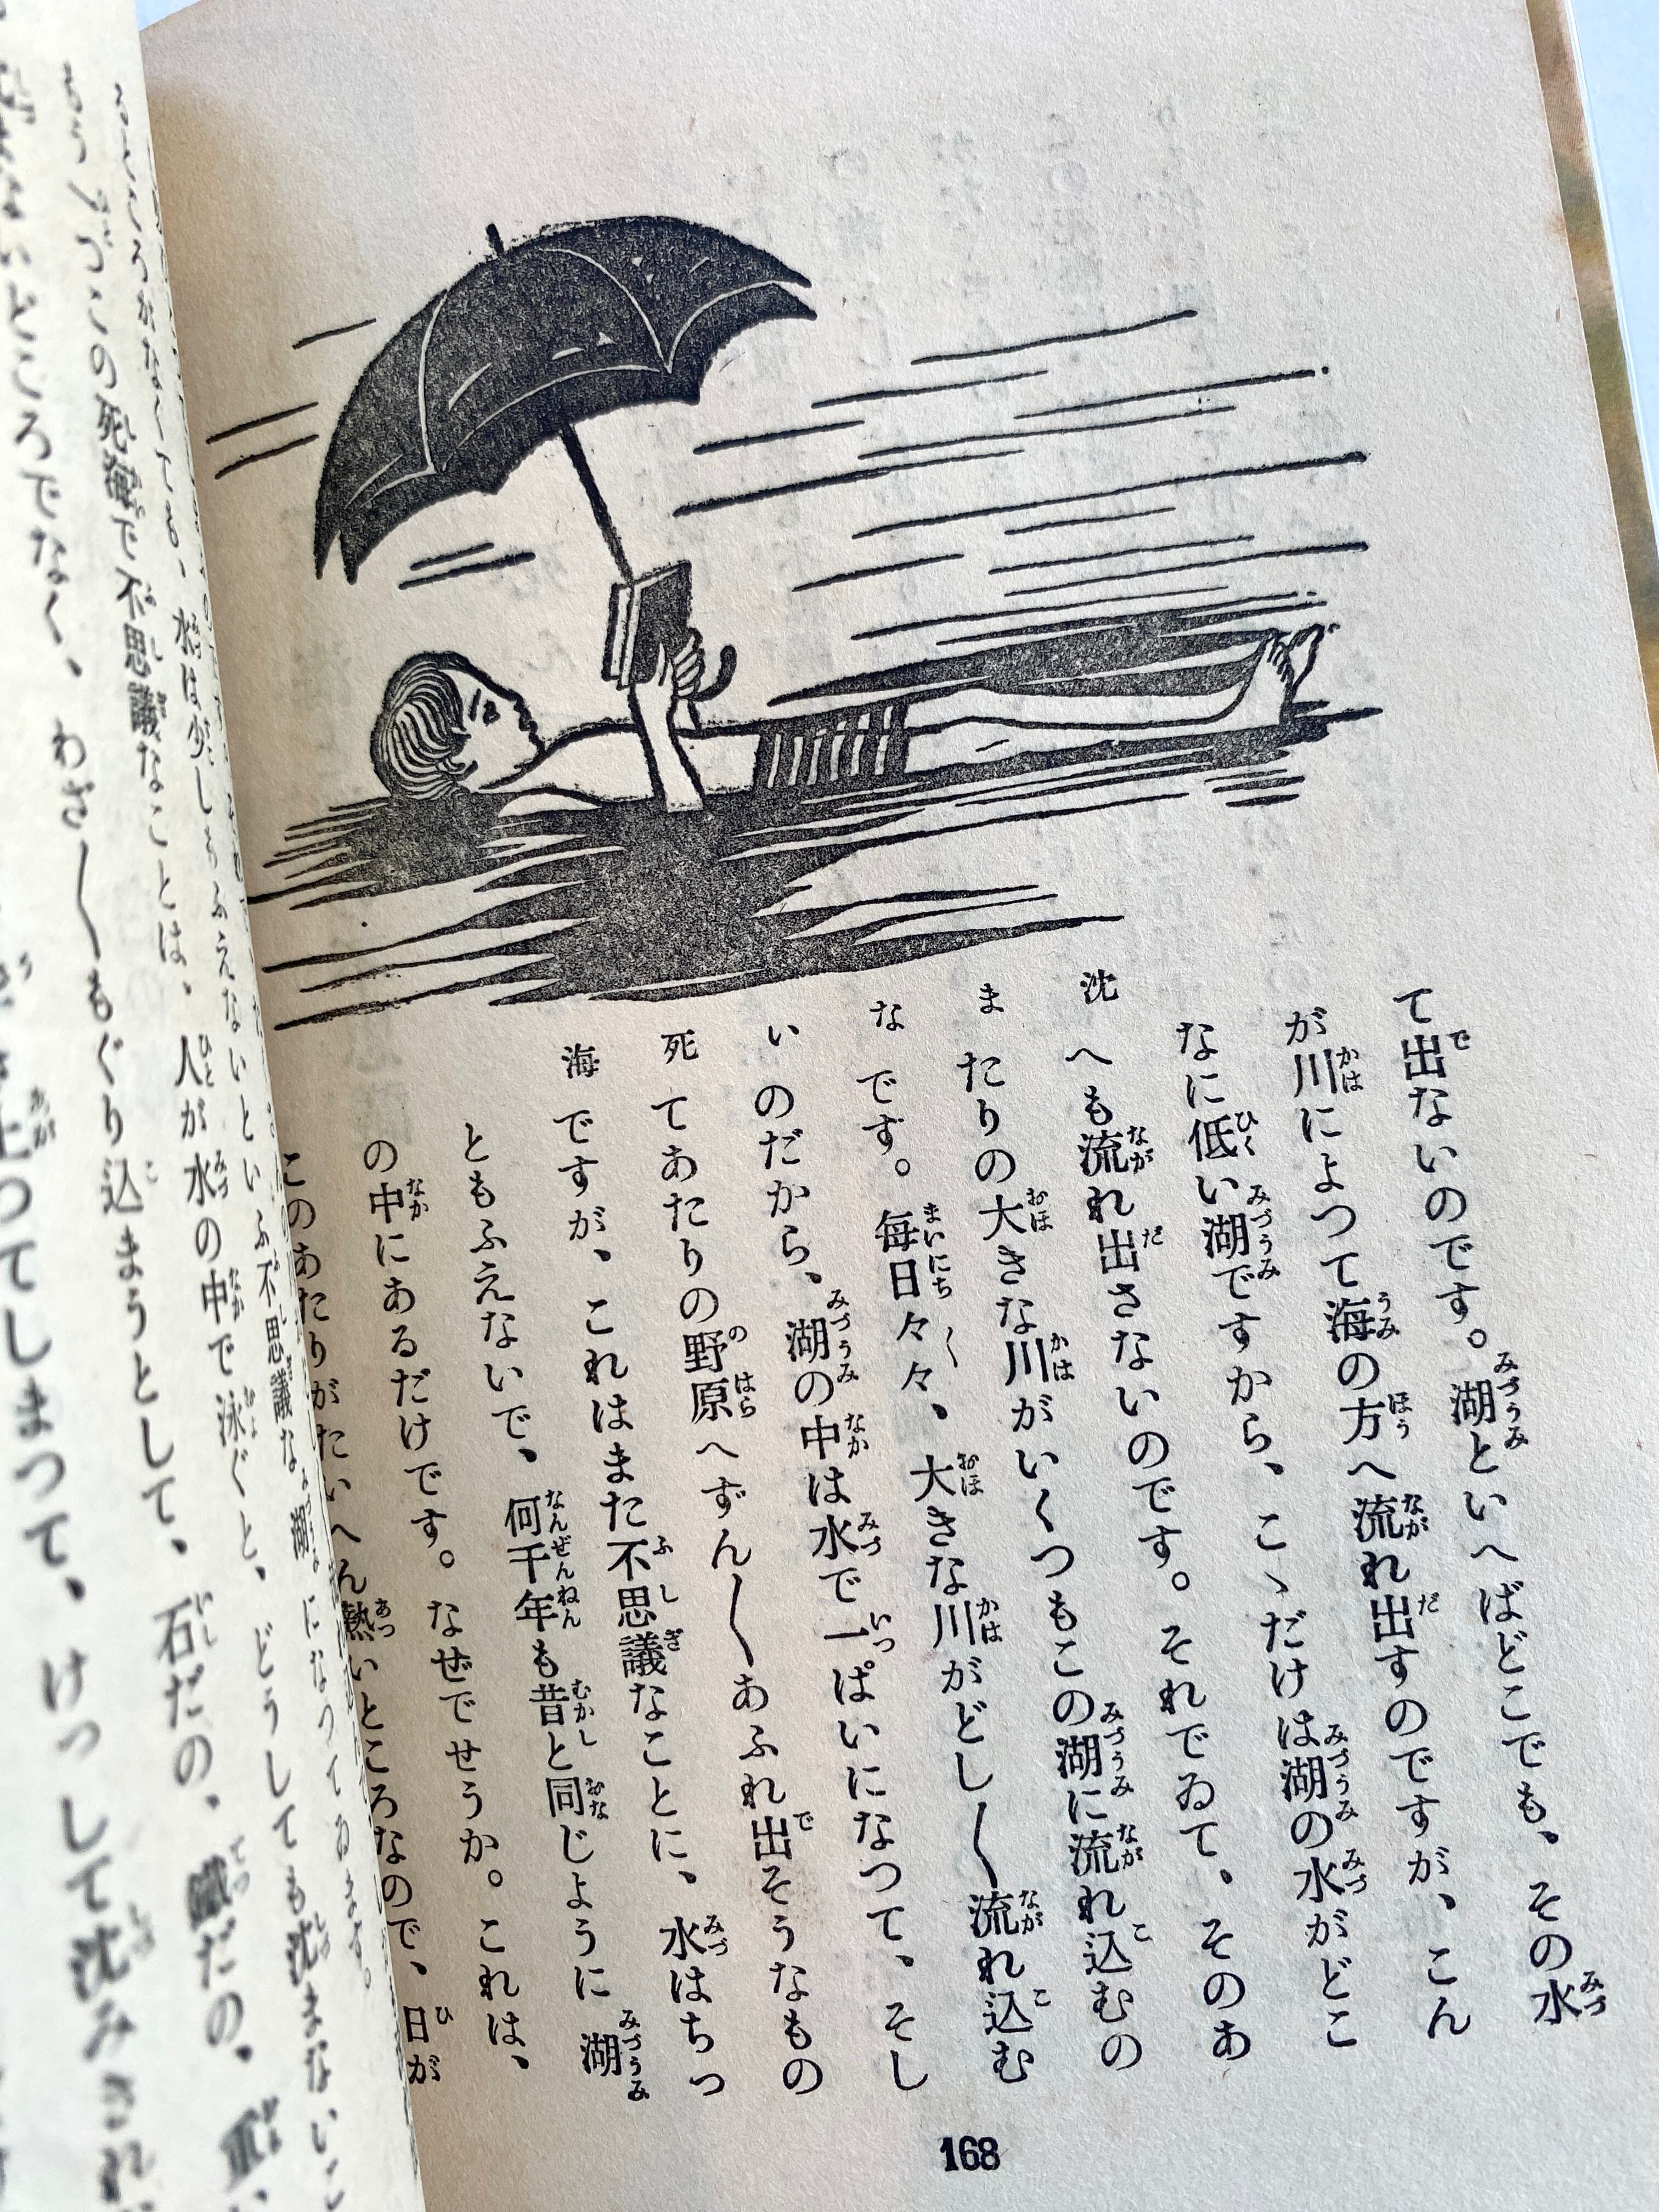 沈まない死海
て出ないのです。湖といへばどこでも、その水
が川によつて海の方へ流れ出すのですが、こん
なに低い湖ですから、こゝだけは湖の水がどこ
へも流れ出さないのです。それでゐて、そのあ
たりの大きな川がいくつもこの湖に流れ込むの
です。毎日々々、大きな川がどし〱流れ込む
のだから、湖の中は水で一ぱいになつて、そし
てあたりの野原へずん〱あふれ出そうなもの
ですが、これはまた不思議なことに、水はちつ
ともふえないで、何千年も昔と同じように湖
の中にあるだけです。なぜでせうか。これは、
このあたりがたいへん熱いところなので、日が
168
ところがなくても、水は少しもふえないといふ不思議な湖になつてゐます。
もう一つこの死海で不思議なことは、人が水の中で泳ぐと、どうしても沈まないこ
ところでなく、わざ〱もぐり込まうとして、石だの、鐵だの、重い
上つてしまつて、けつして沈みきれ